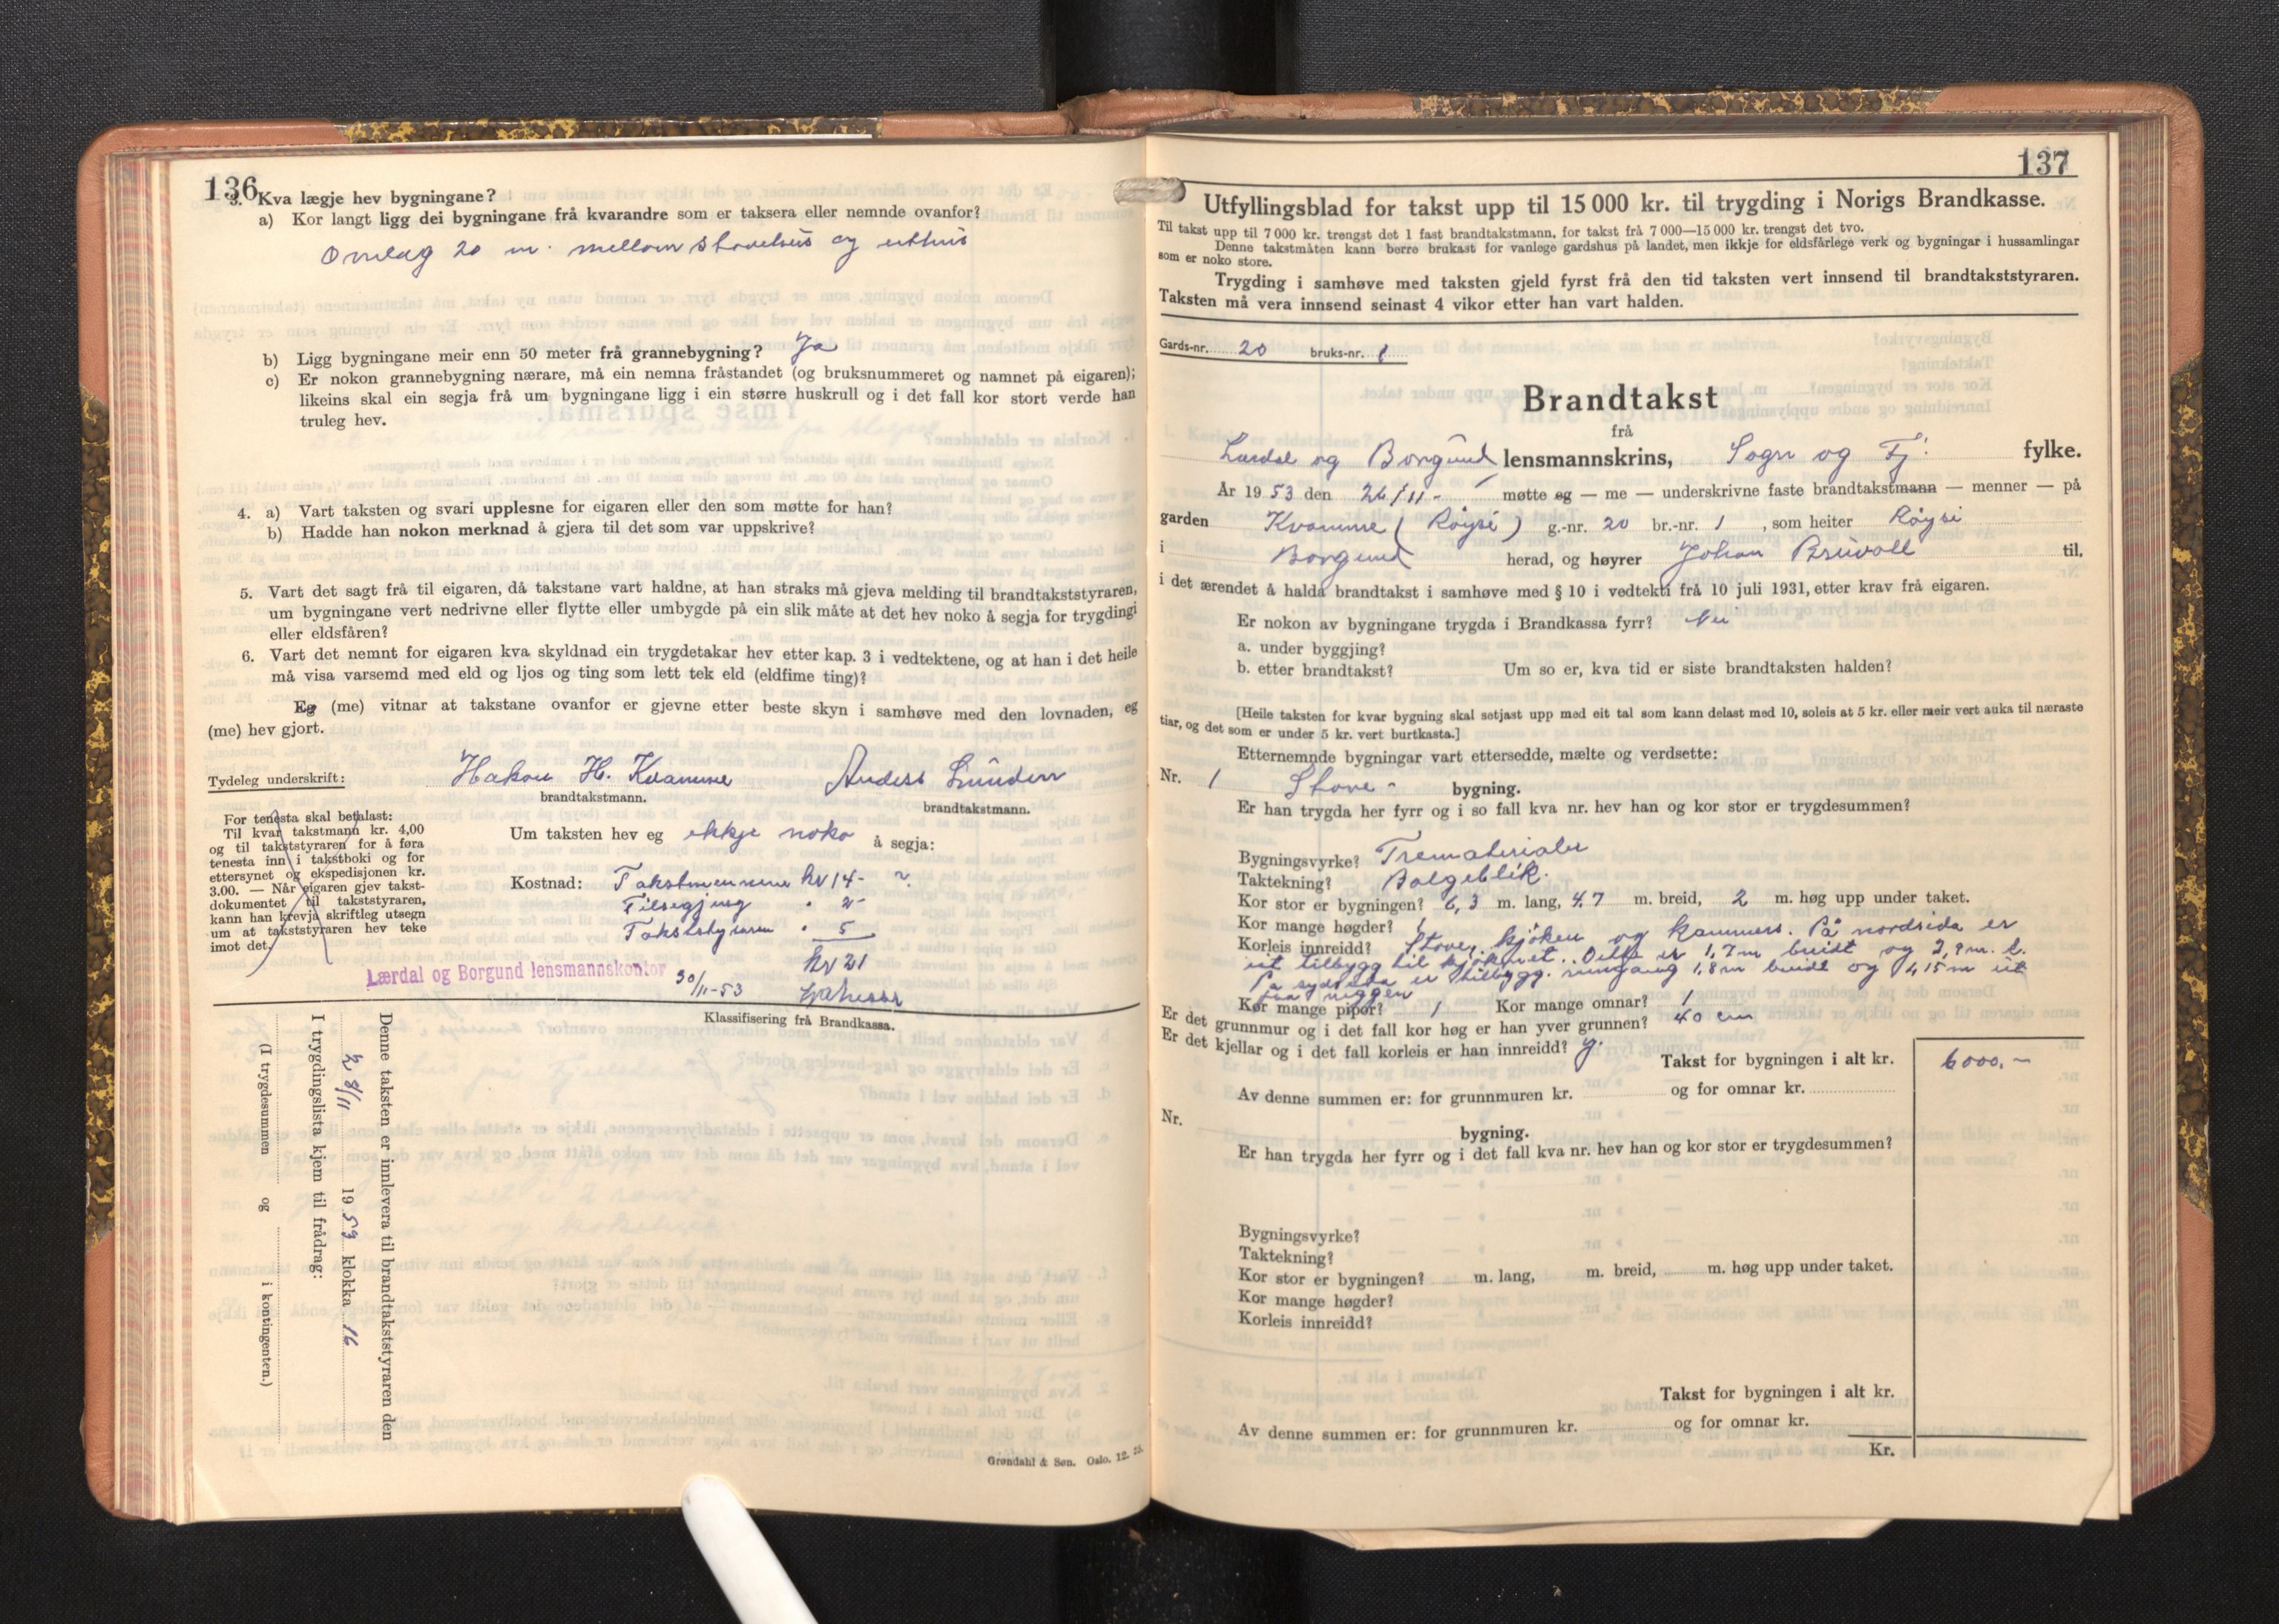 136
3. Kva lægje hev bygningane?
a) Kor langt ligg dei bygningane frå kvarandre som er taksera eller nemnde ovanfor?
Omlag 20 m. mellom stovehus og uthus
b) Ligg bygningane meir enn 50 meter frå grannebygning? Ja
c) Er nokon grannebygning nærare, må ein nemna fråstandet (og bruksnummeret og namnet på eigaren);
likeins skal ein segja frå um bygningane ligg i ein større huskrull og i det fall kor stort verde han
truleg hev.
4. a) Vart taksten og svari upplesne for eigaren eller den som møtte for han?
b) Hadde han nokon merknad å gjera til det som var uppskrive?
5. Vart det sagt frå til eigaren, då takstane vart haldne, at han straks må gjeva melding til brandtakststyraren,
um bygningane vert nedrivne eller flytte eller umbygde på ein slik måte at det hev noko å segja for trygdingi
eller eldsfåren?
6. Vart det nemnt for eigaren kva skyldnad ein trygdetakar hev etter kap. 3 i vedtektene, og at han i det heile
må visa varsemd med eld og ljos og ting som lett tek eld (eldfime ting)?
Eg (me) vitnar at takstane ovanfor er gjevne etter beste skyn i samhøve med den lovnaden, eg
(me) hev gjort.
Tydeleg underskrift: Hakon H. Kvamme Anders Lunden
brandtakstmann. brandtakstmann.
For tenesta skal betalast:
Til kvar takstmann kr. 4,00
og til takststyraren for å føra
tenesta inn i takstboki og for
ettersynet og ekspedisjonen kr.
3.00. — Når eigaren gjev takst-
dokumentet til takststyraren,
kann han krevja skriftleg utsegn
um at takststyraren hev teke
imot det.
Um taksten hev eg ikkje noko å segja:
Kostnad: Takstmennene kr 14-
Tilsegjing " 2-
Takststyraren " 5
kr 21
Lærdal og Borgund lensmannskontor
30/11-53
Klassifisering frå Brandkassa.
Denne taksten er innlevera til brandtakststyraren den
28/11 1953 klokka 16
I trygdingslista kjem til frådrag:
(I trygdesummen og i kontingenten.)
Grøndahl & Søn. Oslo. 12. 35.
137
Utfyllingsblad for takst upp til 15 000 kr. til trygding i Norigs Brandkasse.
Til takst upp til 7 000 kr. trengst det 1 fast brandtakstmann, for takst frå 7 000—15 000 kr. trengst det tvo.
Denne takstmåten kann berre brukast for vanlege gardshus på landet, men ikkje for eldsfårlege verk og bygningar i hussamlingar
som er noko store.
Trygding i samhøve med taksten gjeld fyrst frå den tid taksten vert innsend til brandtakststyraren.
Taksten må vera innsend seinast 4 vikor etter han vart halden.
Gards-nr. 20 bruks-nr. 1
Brandtakst
frå
Lærdal og Borgund lensmannskrins, Sogn og Fj. fylke.
År 1953 den 26/11- møtte eg — me — underskrivne faste brandtakstmann — menner — på
garden Kvamme (Røysi) g.-nr. 20 br.-nr. 1, som heiter Røysi
i Borgund herad, og høyrer Johan Bruvoll til.
i det ærendet å halda brandtakst i samhøve med § 10 i vedtekti frå 10 juli 1931, etter krav frå eigaren.
Er nokon av bygningane trygda i Brandkassa fyrr? Nei
a. under byggjing?
b. etter brandtakst? Um so er, kva tid er siste brandtaksten halden?
[Heile taksten for kvar bygning skal setjast upp med eit tal som kann delast med 10, soleis at 5 kr. eller meir vert auka til næraste
tiar, og det som er under 5 kr. vert burtkasta.]
Etternemnde bygningar vart ettersedde, mælte og verdsette:
Nr. 1 Stove- bygning.
Er han trygda her fyrr og i so fall kva nr. hev han og kor stor er trygdesummen?
Bygningsvyrke? Trematerialer
Taktekning? Bølgeblik.
Kor stor er bygningen? 6,3 m. lang, 4,7 m. breid, 2 m. høg upp under taket.
Kor mange høgder? 1
Korleis innreidd? Stove, kjøken og kammers. På nordsida er
eit tilbygg til kjøkenet. Dette er 1,7 m breidt og 2,9 m. l.
På sydsida er tilbygg. inngang 1,8 m breidt og 1,15 m ut
frå veggen
Kor mange pipor? 1 Kor mange omnar? 1
Er det grunnmur og i det fall kor høg er han yver grunnen? 40 cm
Er det kjellar og i det fall korleis er han innreidd?
Takst for bygningen i alt kr. 6000.-
Av denne summen er: for grunnmuren kr. og for omnar kr.
Nr. bygning.
Er han trygda her fyrr og i det fall kva nr. hev han og kor stor er trygdesummen?
Bygningsvyrke?
Taktekning?
Kor stor er bygningen? m. lang, m. breid, m. høg upp under taket.
Kor mange høgder?
Korleis innreidd?
Takst for bygningen i alt kr.
Av denne summen er: for grunnmuren kr. og for omnar kr.
Kr.